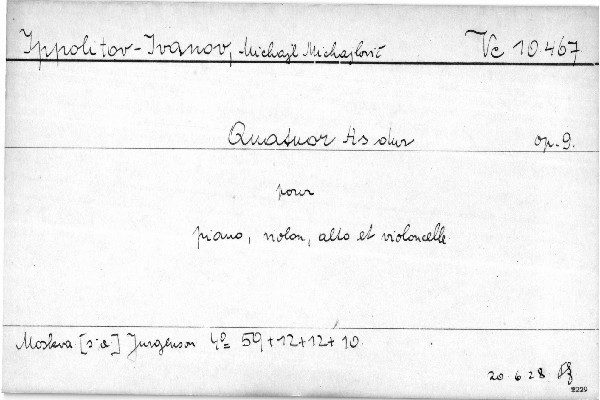 Ippolitov-Ivanov, Michajl Michajlovič Vc 10467
Quatuor As dur op. 9.
pour
piano, violon, alto et violoncelle
Moskva [s.a.] Jurgenson 4º 59+12+12+10
20.6.28.
2229